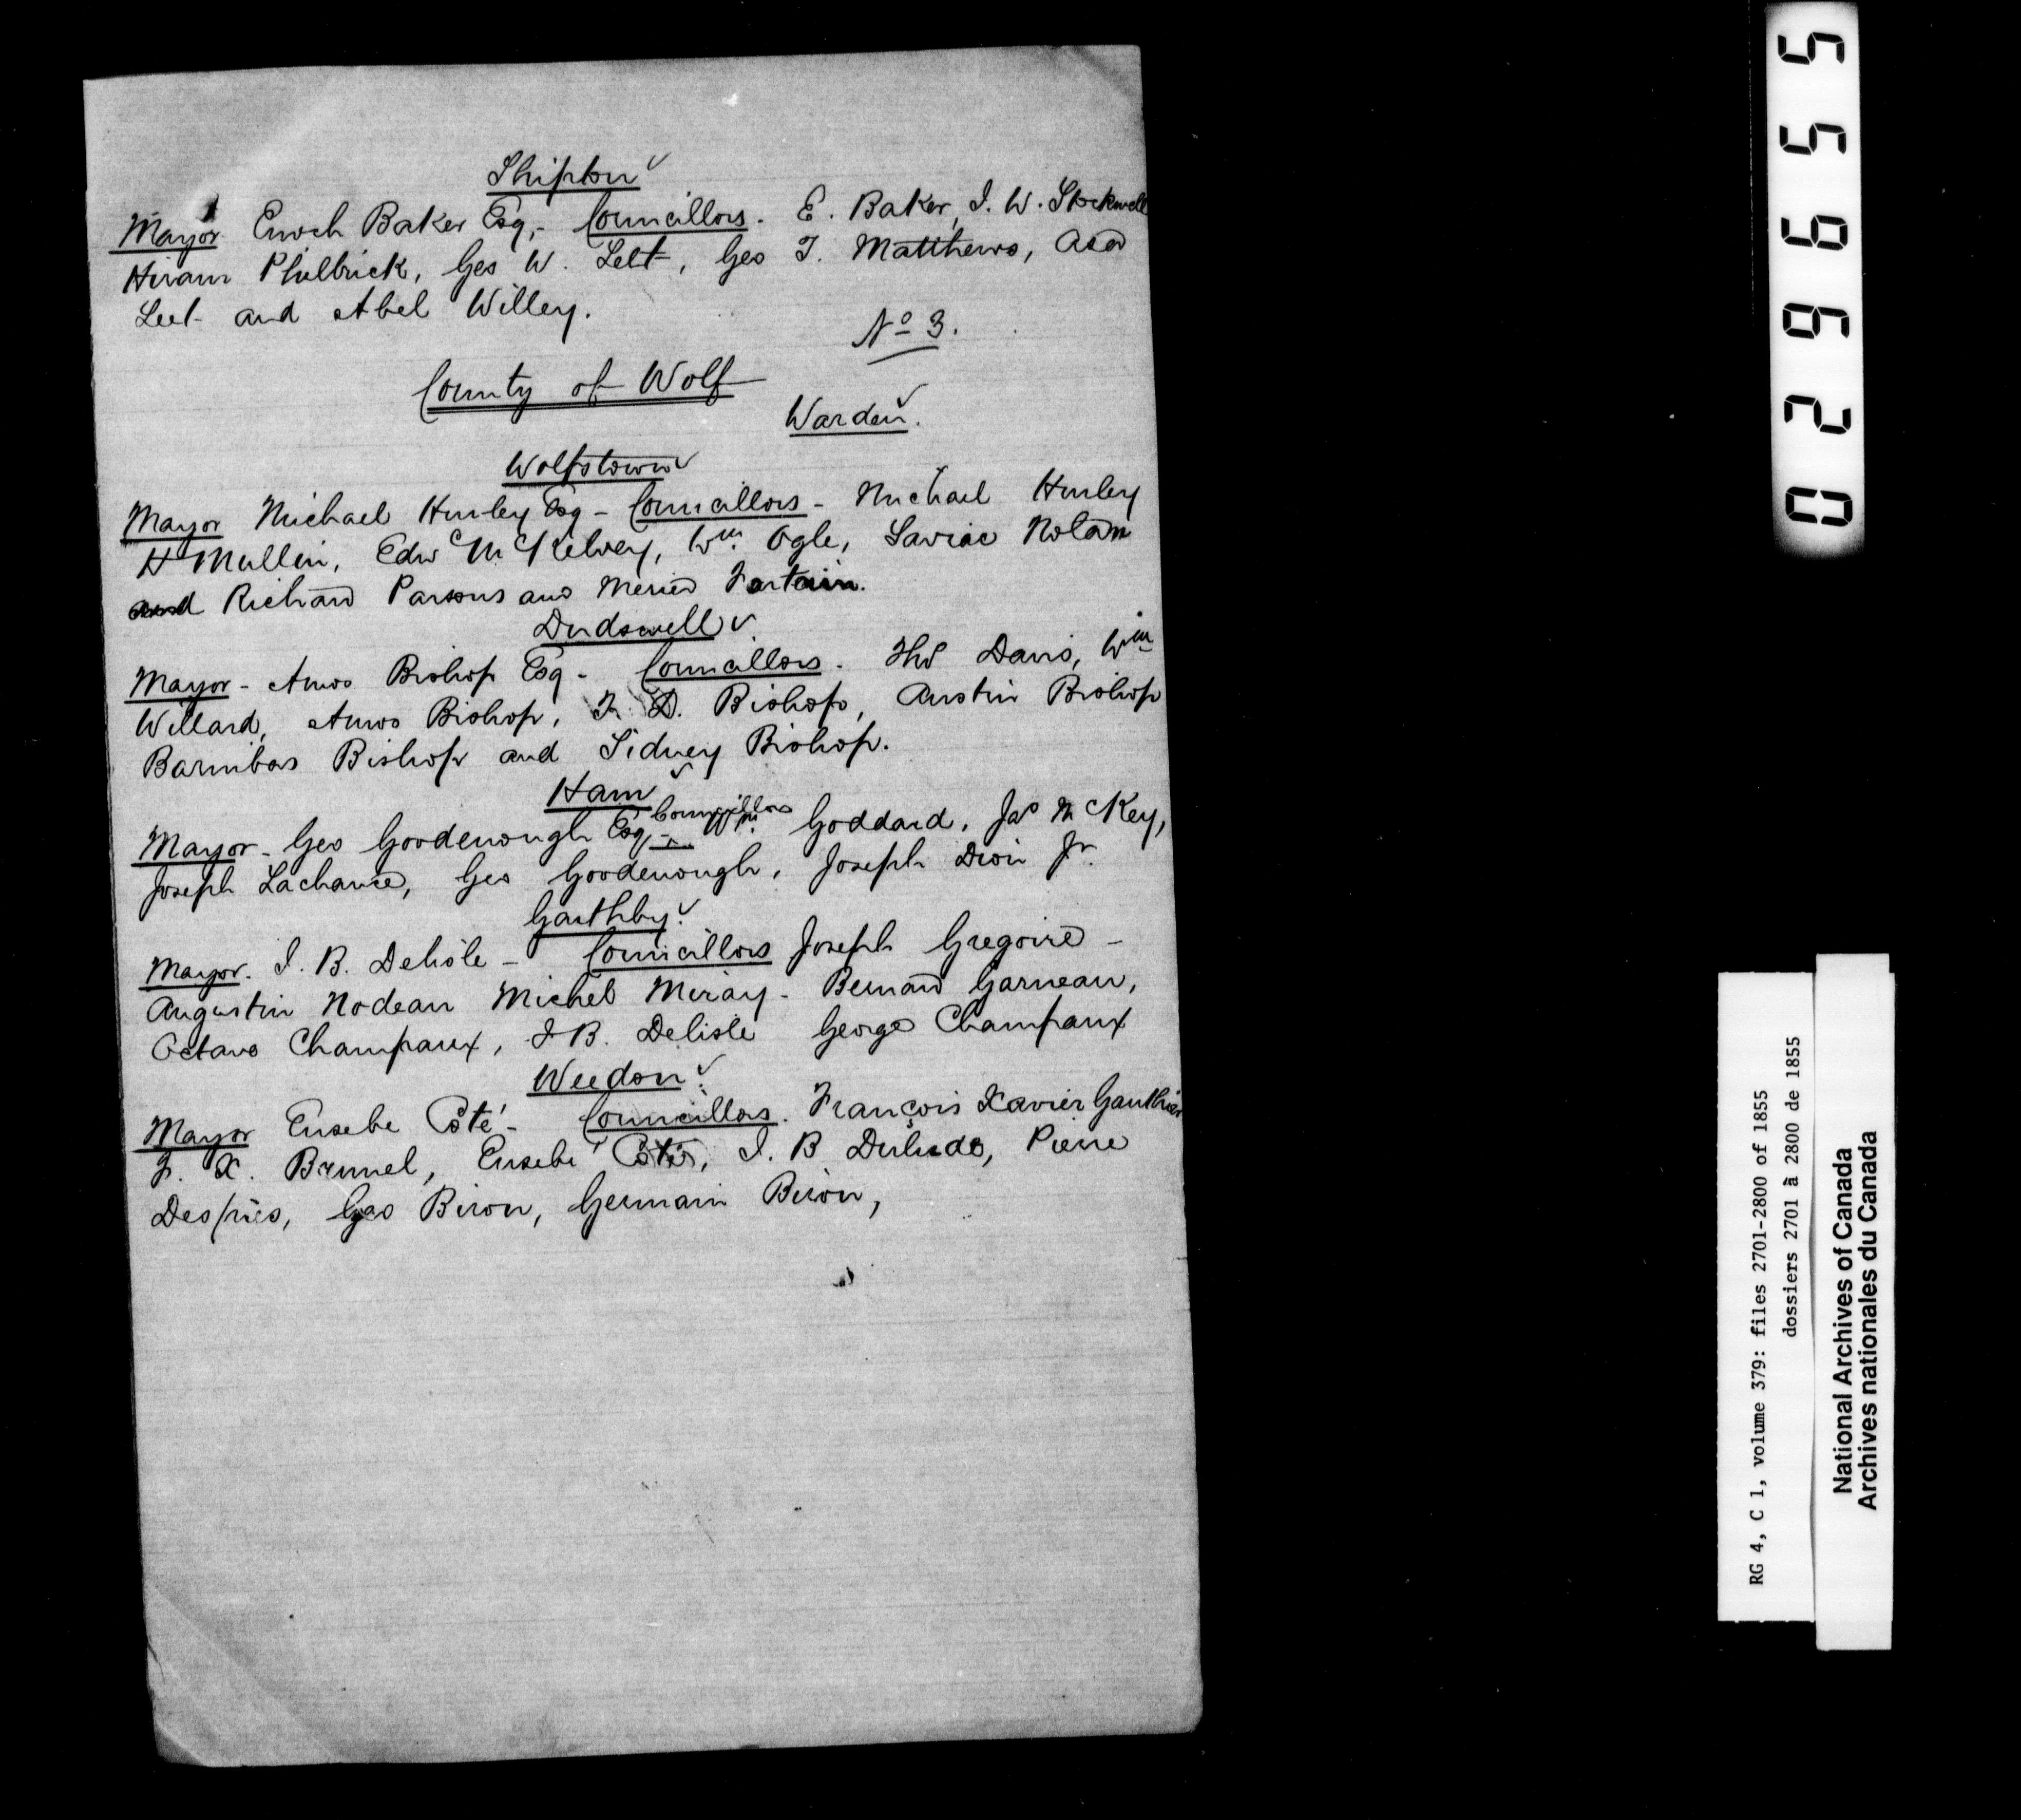 Shipton
Mayor Enoch Baker Esq,- Councillors. E. Baker, I. W. Stockwell
Hiram Philbrick, Geo W. Lelt, Geo T. Matthews, Asa
Leet and Abel Willey.
No 3.
County of Wolf
Warden.
Wolfstown
Mayor Michael Hurley Esq - Councillors - Michael Hurley
H Mullin, Edw McKelvey, Wm. Ogle, Nolan
and Richard Parsons and Fortain.
Dudswell
Mayor - Amos Bishop Esq - Councillors. Davis, Wm
Willard, Amos Bishop, F. D. Bishop, Austin Bishop
Barnibas Bishop and Sidney Bishop.
Ham
Mayor - Geo Goodenough Esq - Councillors Wm. Goddard, Jas McKey,
Joseph Lachance, Geo Goodenough, Joseph Dion Jr.
Garthby.
Mayor. I. B. Delisle - Councillors Joseph Gregoire -
Augustin Nodeau Michel Miray - Bernard Garneau,
Octave Champaux, J B. Delisle George Champaux
Weedon.
Mayor Eusebe Côté - Councillors. François Xavier Gauthier
F. X. Brunel, Eusebe Côté, I. B Pierre
Despris, Geo Biron, Germain Biron,
029655
RG 4, C 1, volume 379: files 2701-2800 of 1855
dossiers 2701 à 2800 de 1855
National Archives of Canada
Archives nationales du Canada